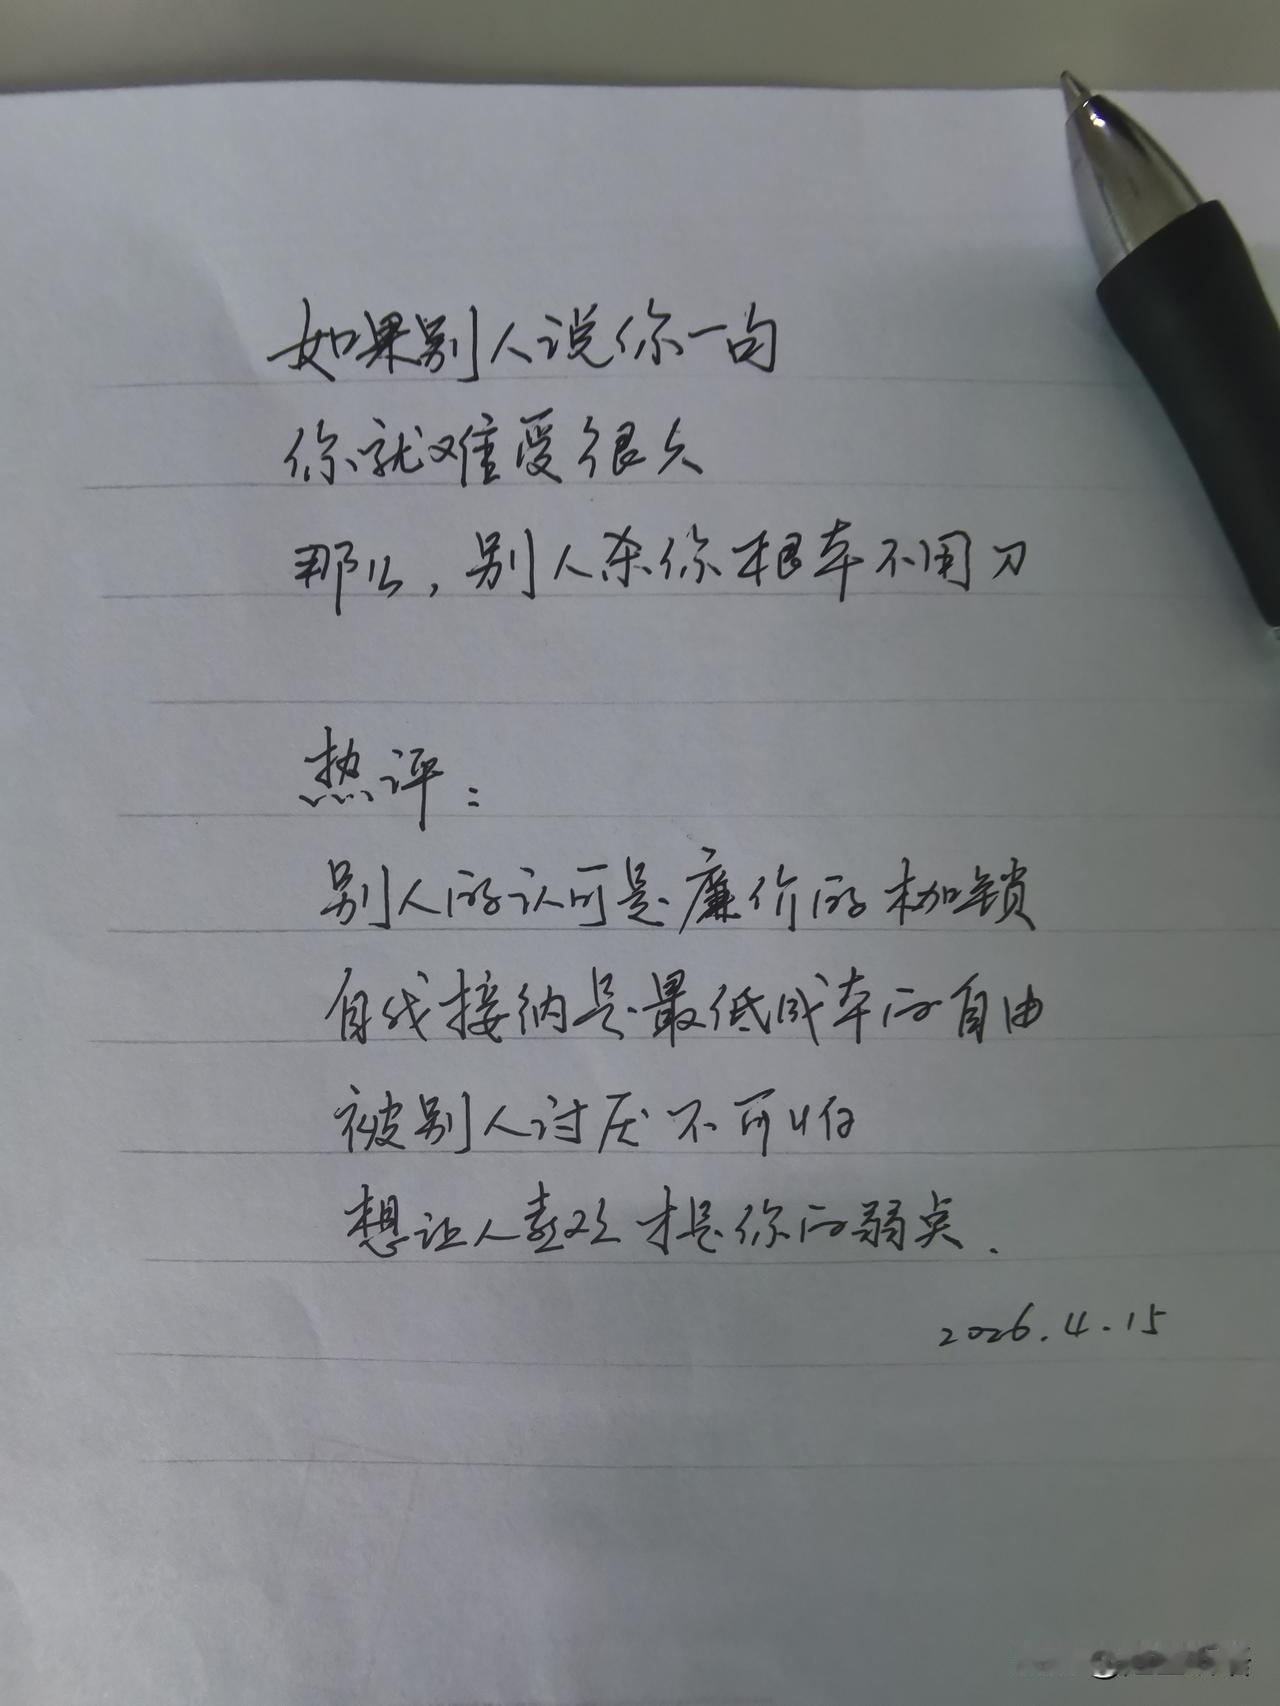 如果别人说你一句
你就难受很久
那么,别人杀你根本不用刀
热评:
别人的认可是廉价的枷锁
自我接纳是最低成本的自由
被别人讨厌不可怕
想让人喜欢才是你的弱点.
2026.4.15